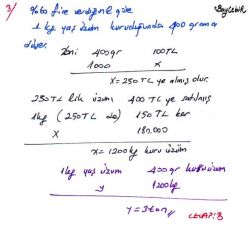 3) %60 fire verdiğine göre
1 kg yaş üzüm kuruduğunda 400 grama
düşer.
Yani 400gr 100TL
1000 x
x=250TL ye almış olur.
250TL lik üzüm 400 TL ye satılmış
1kg (250TL de) 150TL kar
x 180.000
x=1200kg kuru üzüm
1kg yaş üzüm 400gr kuru üzüm
y 1200kg
y=3ton
CEVAP:B